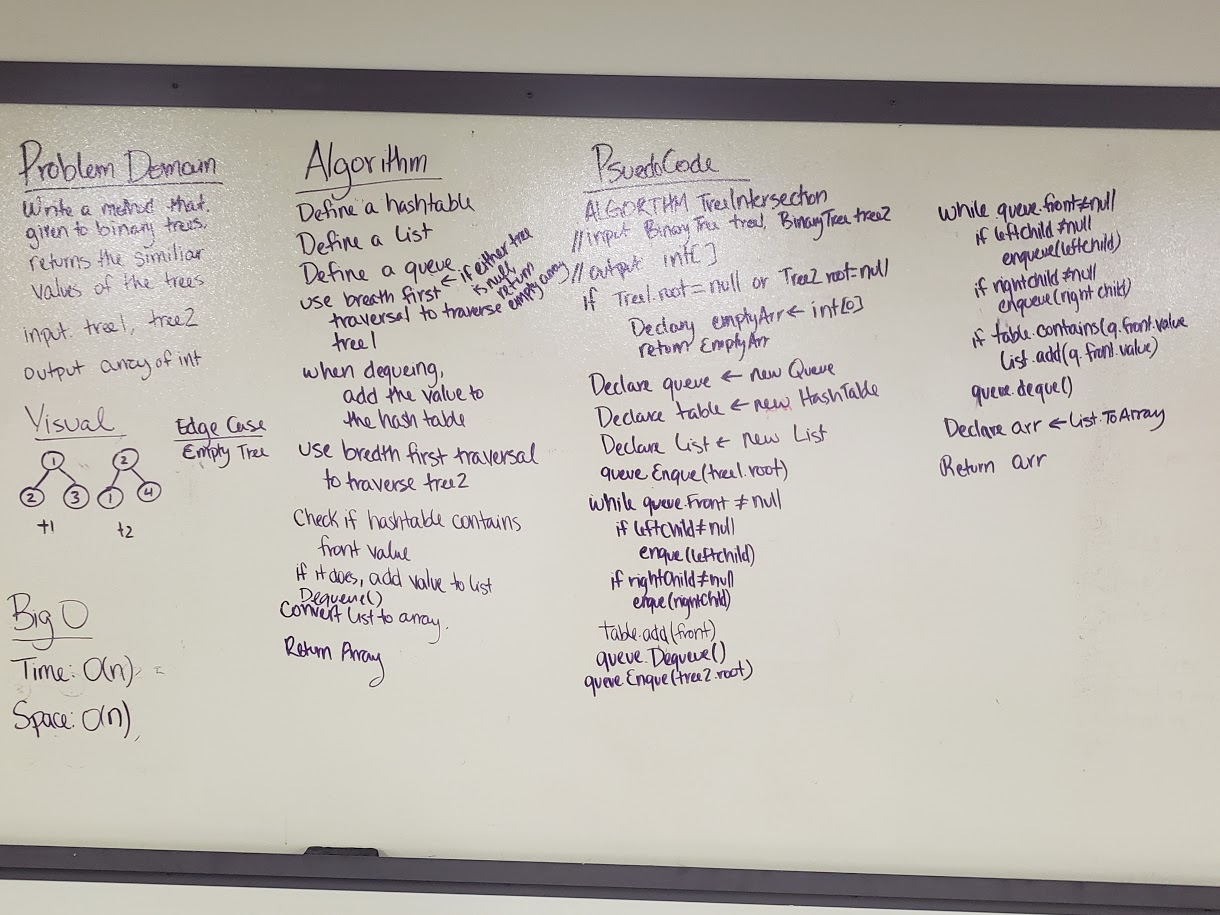 Problem Domain
Write a method that.
given to binary trees.
returns the similiar
values of the trees
input: tree1, tree2
output array of int
Visual
1
2 3
t1
2
1 4
t2
Edge Case
Empty Tree
Big O
Time: O(n)
Space: O(n)
Algorithm
Define a hashtable
Define a List
Define a queue
use breath first ← if either tree
is null
return
empty array
traversal to traverse
tree1
when dequeing,
add the value to
the hash table
use bredth first traversal
to traverse tree2
Check if hashtable contains
front value
if it does, add value to list
Dequeue()
Convert List to array.
Return Array
PsuedoCode
ALGORTHM TreeIntersection
// input BinaryTree tree1, BinaryTree tree2
// output int[]
if Tree1.root = null or Tree2 root = null
Declary emptyArr ← int[0]
return EmptyArr
Declare queue ← new Queue
Declare table ← new HashTable
Declare List ← new List
queue Enque(tree1.root)
while queue.Front ≠ null
if leftChild ≠ null
enque(leftchild)
if rightChild ≠ null
enque(rightChild)
table.add(front)
queue.Dequeue()
queue.Enque(tree2.root)
while queue.front ≠ null
if leftChild ≠ null
enqueue(leftchild)
if rightchild ≠ null
enqueue(right child)
if table.contains(q.front.value
List.add(q.front.value)
queue.deque()
Declare arr ← List.ToArray
Return arr